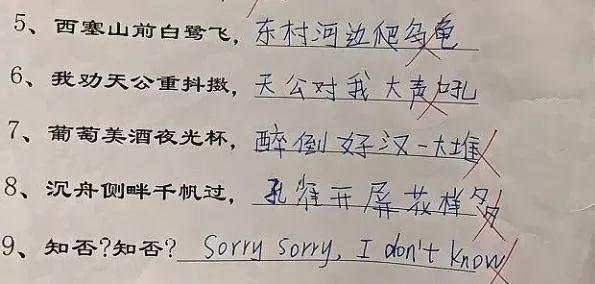 5、西塞山前白鹭飞，东村河边爬乌龟
6、我劝天公重抖擞，天公对我大声吼
7、葡萄美酒夜光杯，醉倒好汉一大堆
8、沉舟侧畔千帆过，孔雀开屏花样多
9、知否?知否? Sorry sorry, I don't know